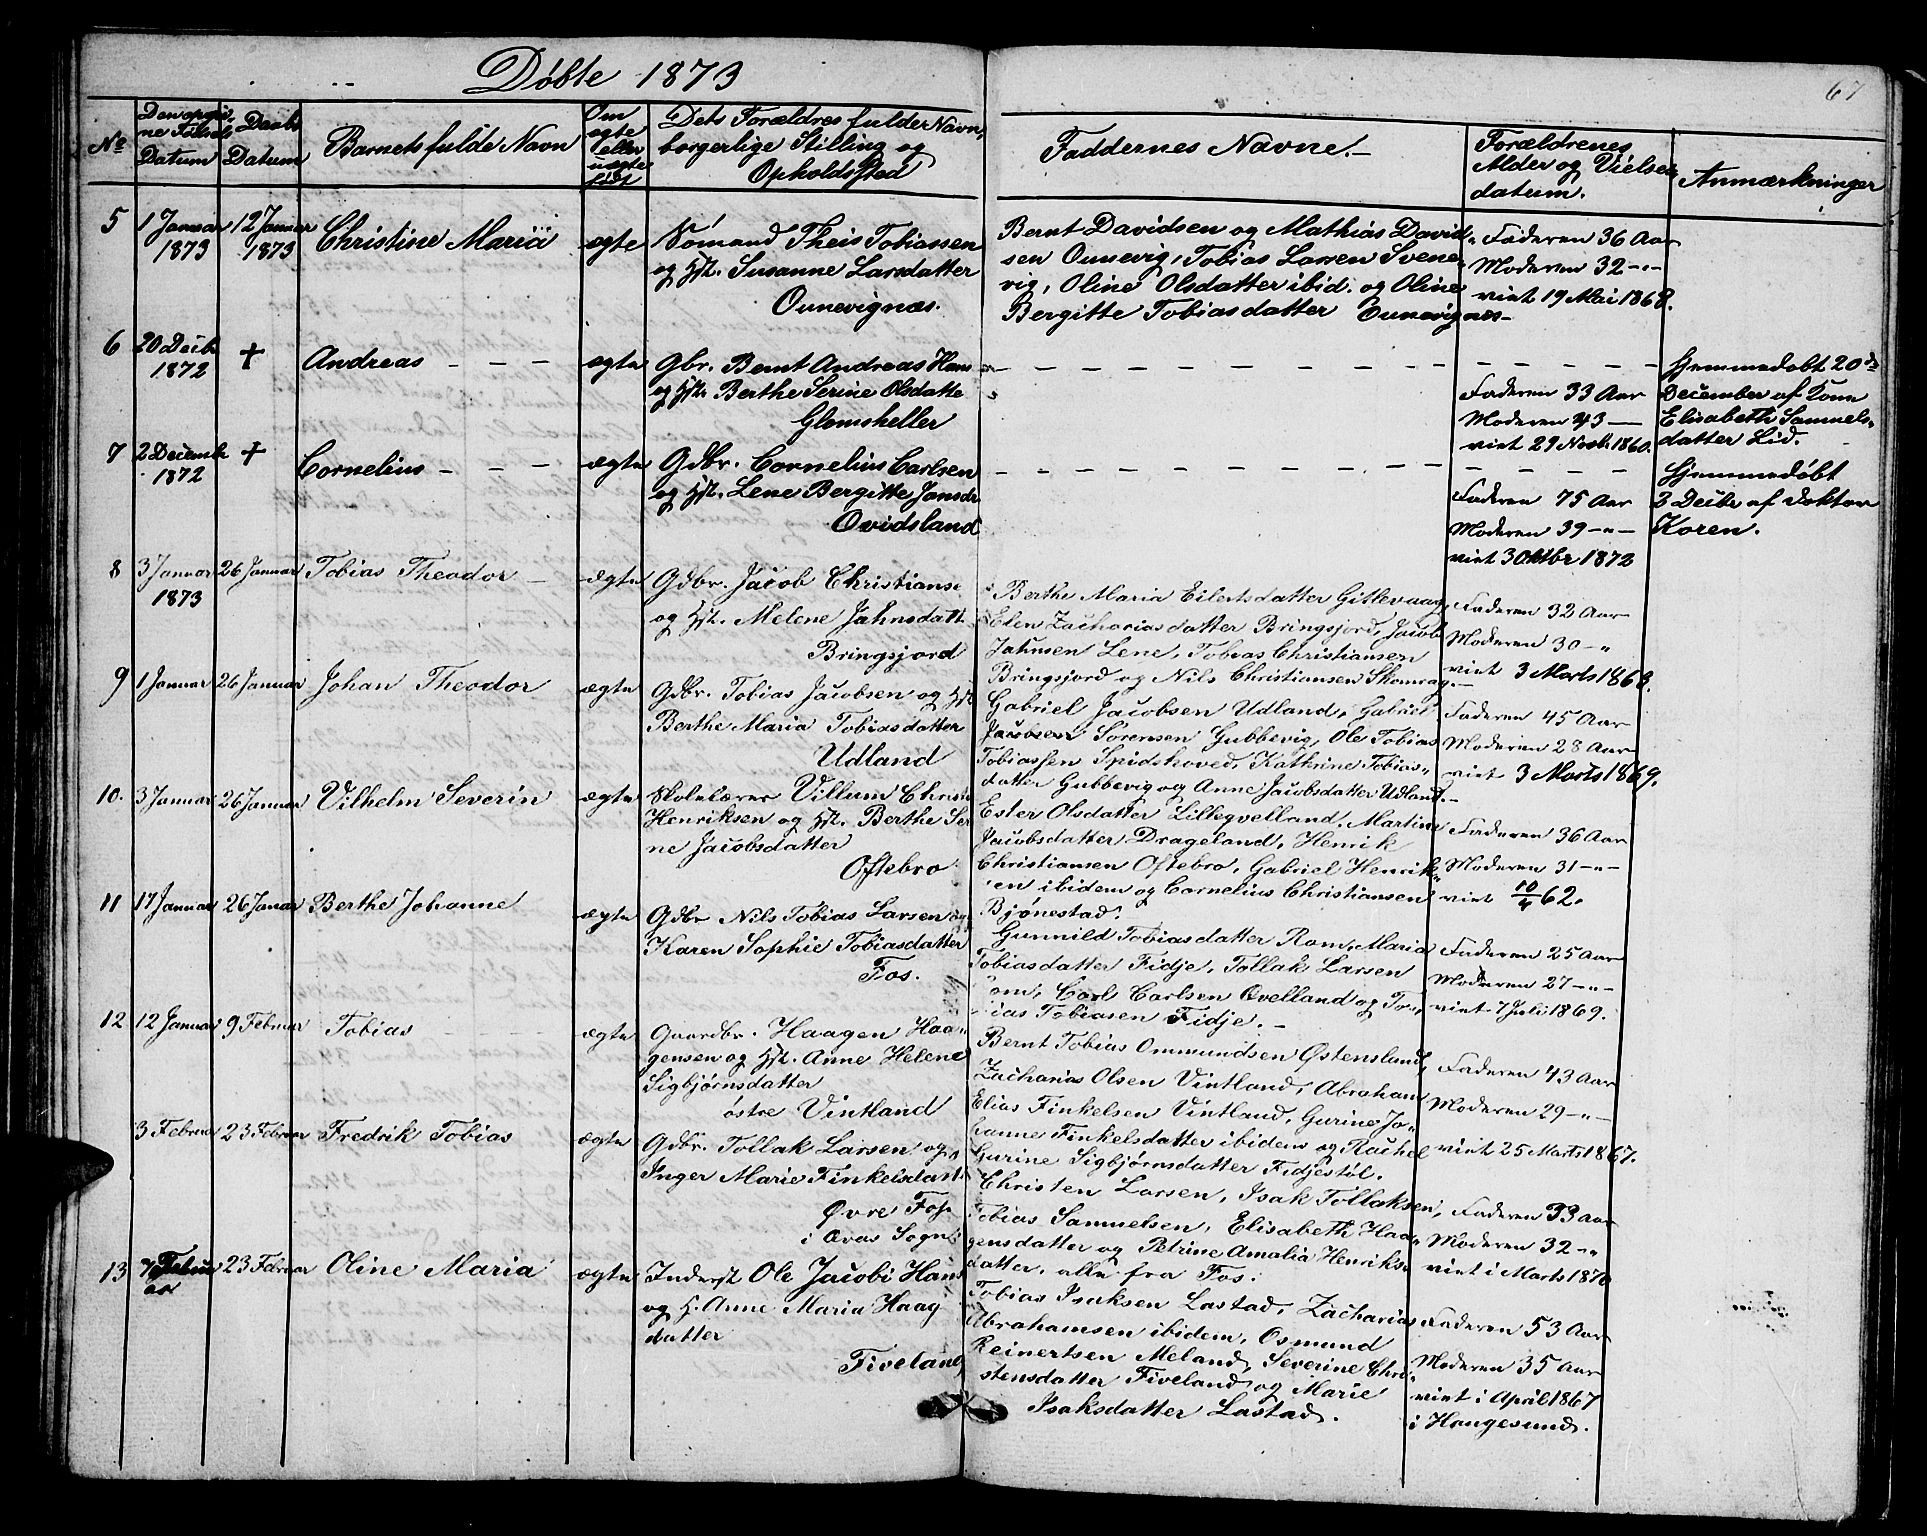 Döbte 1873
67
No
Datum
Daabs
Datum
Barnets fulde Navn
Om
egte
eller
uegte
Dets Forældres fulde Navn,
borgerlige Stilling og
Opholdssted
Faddernes Navne.-
Forældrenes
Alder og Vielses
datum.
Anmærkninger
5
1 Januar
1873
12 Januar
1873
Christine Maria
ægte
Sömand Theis Tobiassen
og Hst. Susanne Larsdatter
Ounevignæs.
Bernt Davidsen og Mathias David-
sen Ounevig, Tobias Larsen Svene-
vig, Oline Olsdatter ibid. og Oline
Bergitte Tobiasdatter Ounevignæs-
Faderen 36 Aar
Moderen 32 -"-
viet 19 Mai 1868.
6
20 Decbr
1872
+
Andreas - - -
ægte
Gbr. Bernt Andreas Hans
og Hst. Berthe Serine Olsdatte
Glomsheller
Faderen 33 Aar
Moderen 43 -
viet 29 Novb. 1860.
Hjemmedöbt 20de
December af Kone
Elisabeth Samuels-
datter Lid.
7
2 Decemb
1872
+
Cornelius - - -
ægte
Gdbr. Cornelius Carlsen
og Hst. Lene Bergitte Jansd
Ovidsland
Faderen 75 Aar
Moderen 39 -"-
viet 3 Oktbr 1872
Hjemmedöbt
3 Decbr af Doktor
Koren.
8
3 Januar
1873
26 Januar
Tobias Theodor -
ægte
Gdbr. Jacob Christianse
og Hst. Melene Jahnsdatt
Bringsjord
Berthe Maria Eilertsdatter Gitlevaag,
Elen Zachariasdatter Bringsjord, Jacob
Jahnsen Lene, Tobias Christiansen
Bringsjord og Nils Christiansen Skomrag.-
Faderen 32 Aar
Moderen 30 -"
viet 3 Marts 1868.
9
1 Januar
26 Januar
Johan Theodor
ægte
Gdbr. Tobias Jacobsen og Hst
Berthe Maria Tobiasdatter
Udland
Gabriel Jacobsen Udland, Gabriel
Jacobsen Sörensen Gubbevig, Ole Tobias
Tobiassen Spidshoved, Kathrine Tobias-
datter Gubbevig og Anne Jacobsdatter Udland.-
Faderen 45 Aar
Moderen 28 Aar
viet 3 Marts 1869.
10.
3 Januar
26 Januar
Vilhelm Severin
ægte
Skolelærer Villum Christi
Henriksen og Hst. Berthe Ser
ne Jacobsdatter
Oftebro
Ester Olsdatter Lillegvelland, Martine
Jacobsdatter Drageland, Henrik
Christiansen Oftebro, Gabriel Henrik-
en ibidem og Cornelius Christiansen
Bjönestad.
Faderen 36 Aar
Moderen 31 -"-
viet 10/4 62.
11
17 Januar
26 Januar
Berthe Johanne
ægte
Gdbr Nils Tobias Larsen og
Karen Sophie Tobiasdatter
Fos.
Gunnild Tobiasdatter Rom, Maria
Tobiasdatter Fidje, Tollak Larsen
om, Carl Carlsen Øvelland og To-
ias Tobiasen Fidje.-
Faderen 25 Aar
Moderen 27 -"-
viet 7 Juli 1869.
12
12 Januar
9 Februar
Tobias
ægte
Gaardbr. Haagen Haa-
gensen og Hst. Anne Helene
Sigbjörnsdatter
östre Vintland
Bernt Tobias Ommundsen Østensland,
Zacharias Olsen Vintland, Abraham
Elias Finkelsen Vintland, Gurine Jo-
hanne Finkelsdatter ibidem og Rachel
Gurine Sigbjörnsdatter Fidjestöl.
Faderen 43 Aar
Moderen 29 -"-
viet 25 Marts 1867.
3 Februar
23 Februar
Fredrik Tobias
ægte
Gdbr. Tollak Larsen og
Inger Marie Finkelsdatt
Øvre Fos
i Avas Sogn
Christen Larsen, Isak Tollaksen,
Tobias Samuelsen, Elisabeth Haa-
gensdatter og Petrine Amalia Henriks-
datter, alle fra Fos.
Faderen 33 Aar
Moderen 32 -"
viet i Marts 1870
13
7 Febru
ar
23 Februar
Oline Maria
ægte
Inderst Ole Jacobi Hans
og H. Anne Maria Haag
datter
Fiveland
Tobias Isaksen Lastad, Zacharias
Abrahamsen ibidem, Osmund
Reinertsen Meland, Severine Chri-
stensdatter Fiveland og Marie
Isaksdatter Lastad.
Faderen 53 Aar
Moderen 35 Aar
viet i April 1867
i Haugesund.